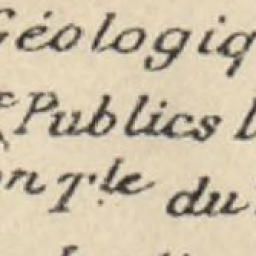 Géologiq
Publics l
on T.le du